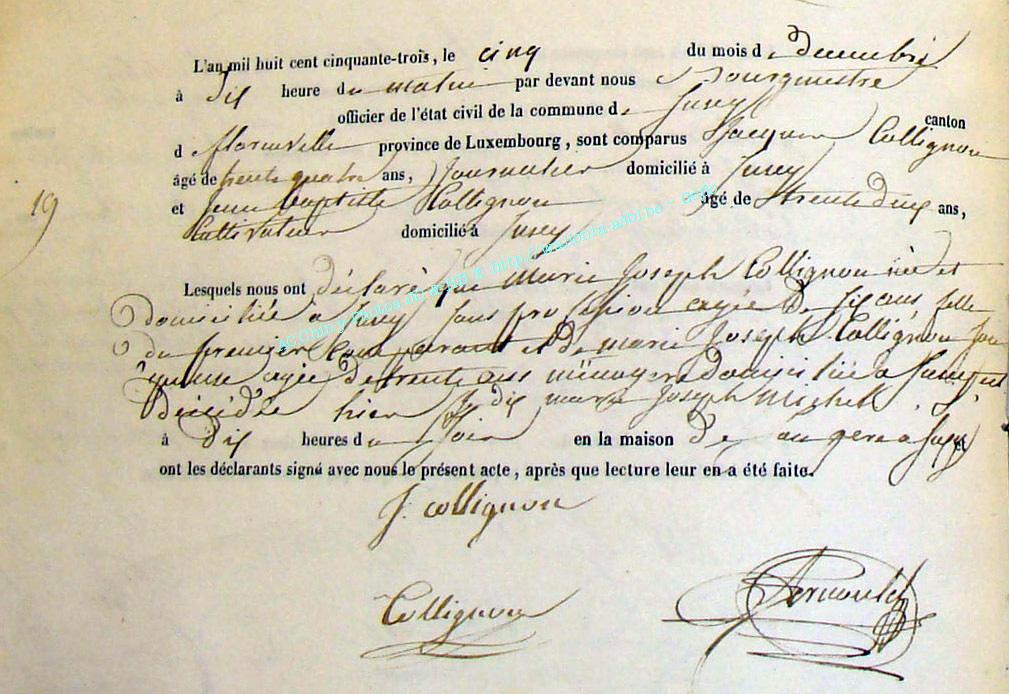 L'an mil huit cent cinquante-trois, le cinq du mois de decembre
à dix heure du matin par devant nous Bourgmestre
officier de l'état civil de la commune de Jusey canton
d florenville province de Luxembourg, sont comparus Jacques Collignon
âgé de trente quatre ans, Journalier domicilié à Jusey
et Jean Baptiste Collignon âgé de trente deux ans,
Cultivateur domicilié à Jusey
19
Lesquels nous ont déclaré que Marie Joseph Collignon née et
domiciliée à Jusey sans profession agée de six ans, fille
du premier Comparant et de marie Joseph Collignon
agée de trente ans ménagere domiciliée a Jusey est
décédée hier dix marie Joseph Michel
à dix heures du Soir en la maison de a Jusey et
ont les déclarants signé avec nous le présent acte, après que lecture leur en a été faite.
J. Collignon
Collignon